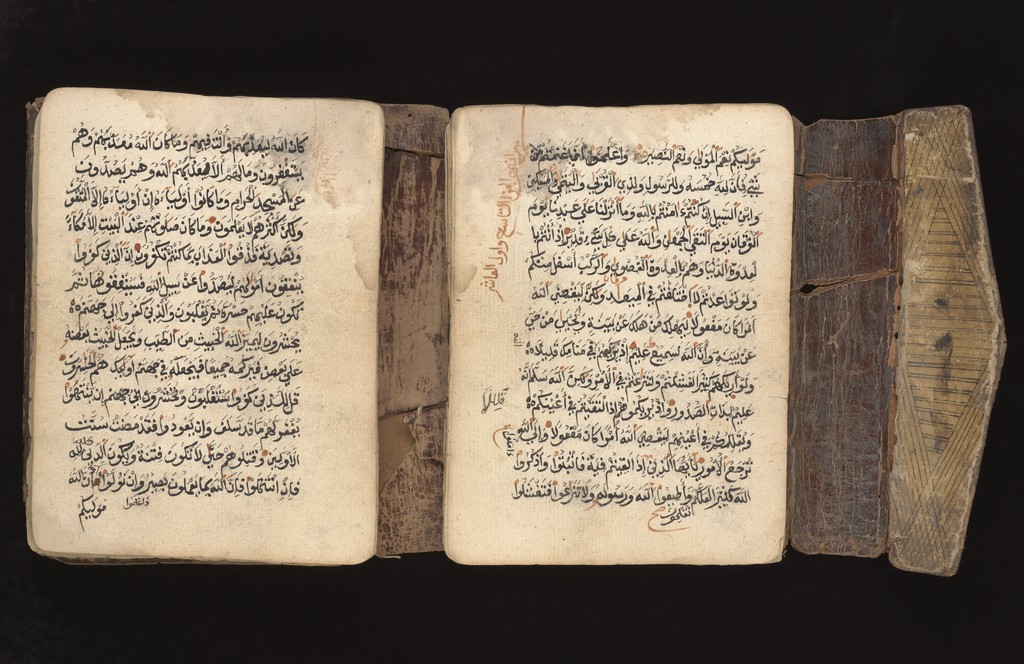 كان الله ليعذبهم وأنت فيهم وما كان الله معذبهم وهم
يستغفرون وما لهم ألا يعذبهم الله وهم يصدون
عن المسجد الحرام وما كانوا أولياءه إن أولياؤه إلا المتقون
ولكن أكثرهم لا يعلمون وما كان صلوتهم عند البيت إلا مكاء
وتصدية فذوقوا العذاب بما كنتم تكفرون إن الذين كفروا
ينفقون أموالهم ليصدوا عن سبيل الله فسينفقونها ثم
تكون عليهم حسرة ثم يغلبون والذين كفروا إلى جهنم
يحشرون ليميز الله الخبيث من الطيب ويجعل الخبيث بعضه
على بعض فيركمه جميعا فيجعله في جهنم أوليك هم الخسرون
قل للذين كفروا ستغلبون وتحشرون إلى جهنم إن ينتهوا
يغفر لهم ما قد سلف وإن يعودوا فقد مضت سنت
الأولين وقتلوهم حتى لا تكون فتنة ويكون الدين كله لله
فإن انتهوا فإن الله بما يعملون بصير وإن تولوا فاعلموا أن الله
موليكم
موليكم نعم المولى ونعم النصير واعلموا أنما غنمتم من
شيء فأن لله خمسه وللرسول ولذي القربى واليتمى والمسكين
وابن السبيل إن كنتم ءامنتم بالله وما أنزلنا على عبدنا يوم
الفرقان يوم التقى الجمعان والله على كل شيء قدير إذ أنتم با
لعدوة الدنيا وهم بالعدوة القصوى والركب أسفل منكم
ولو تواعدتم لاختلفتم في الميعد ولكن ليقضي الله
أمرا كان مفعولا ليهلك من هلك عن بينة ويحيى من حي
عن بينة وإن الله لسميع عليم إذ يريكهم في منامك قليلا
ولو أريكهم كثيرا لفشلتم ولتنزعتم في الأمر ولكن الله سلم إنه
عليم بذات الصدور وإذ يريكموهم إذ التقيتم في أعينكم
قليلا
ويقللكم في أعينهم ليقضي الله أمرا كان مفعولا وإلى الله
ترجع الأمور يأيها الذين ءامنوا إذا لقيتم فية فاثبتوا واذكروا
الله كثيرا لعلكم وأطيعوا الله ورسوله ولا تنزعوا فتفشلوا
تفلحون صح